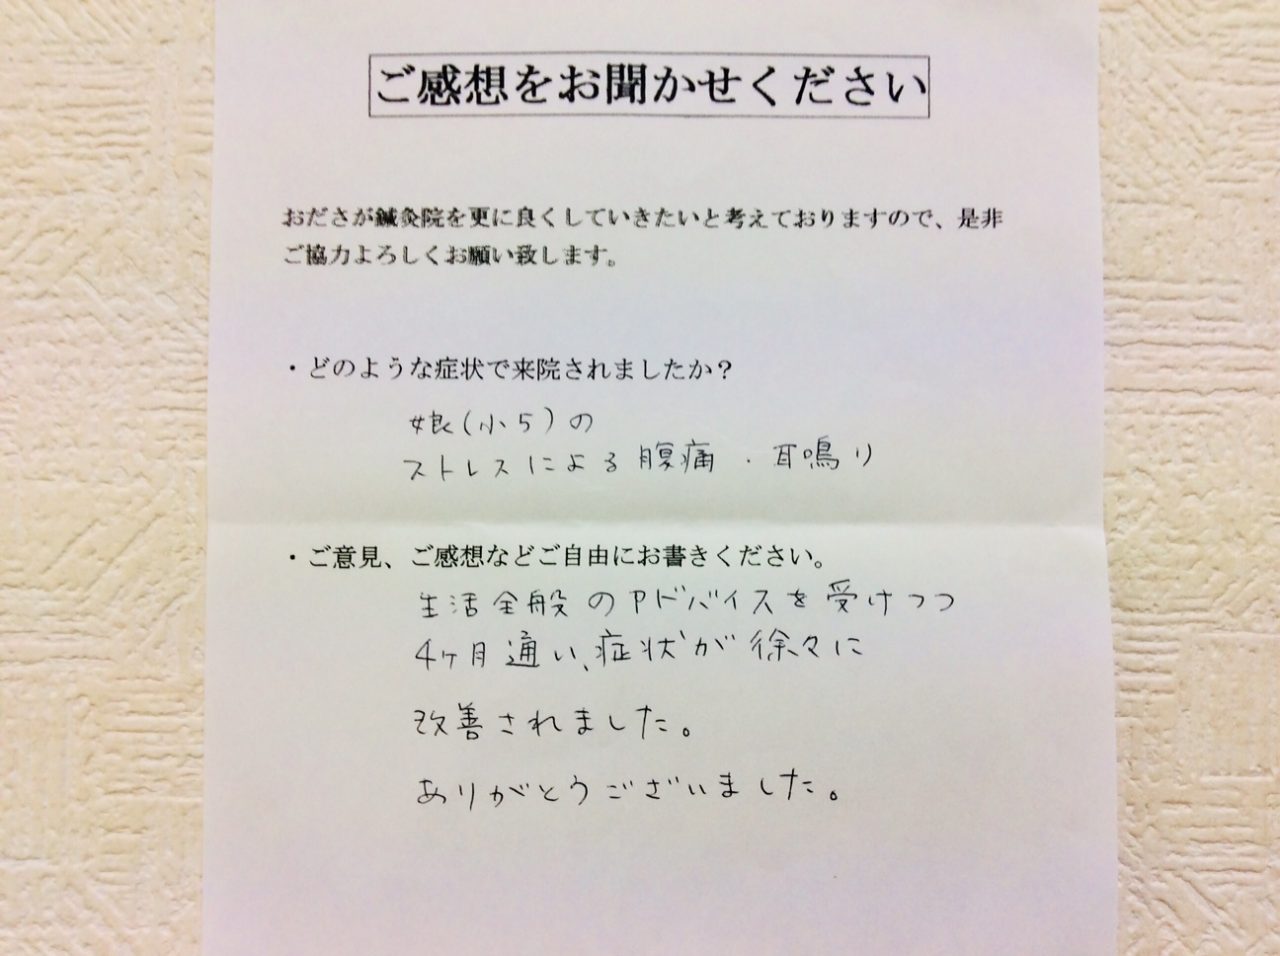 ご感想をお聞かせください
おださが鍼灸院を更に良くしていきたいと考えておりますので、是非
ご協力よろしくお願い致します。
・どのような症状で来院されましたか？
娘(小5)の
ストレスによる腹痛・耳鳴り
・ご意見、ご感想などご自由にお書きください。
生活全般のアドバイスを受けつつ
4ヶ月通い、症状が徐々に
改善されました。
ありがとうございました。